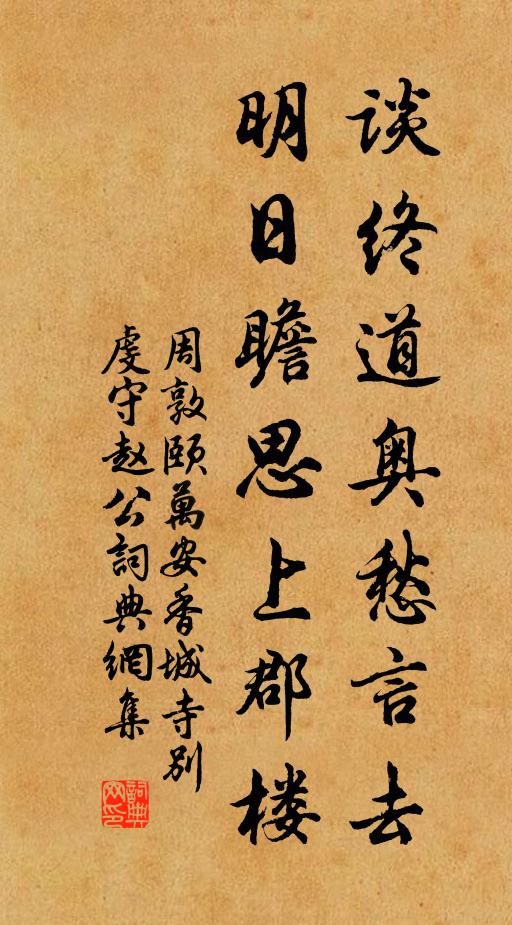 谈终道奥愁言去
明日瞻思上郡楼
周敦颐萬安香城寺别
虔守赵公詞典網集
詞典
网印